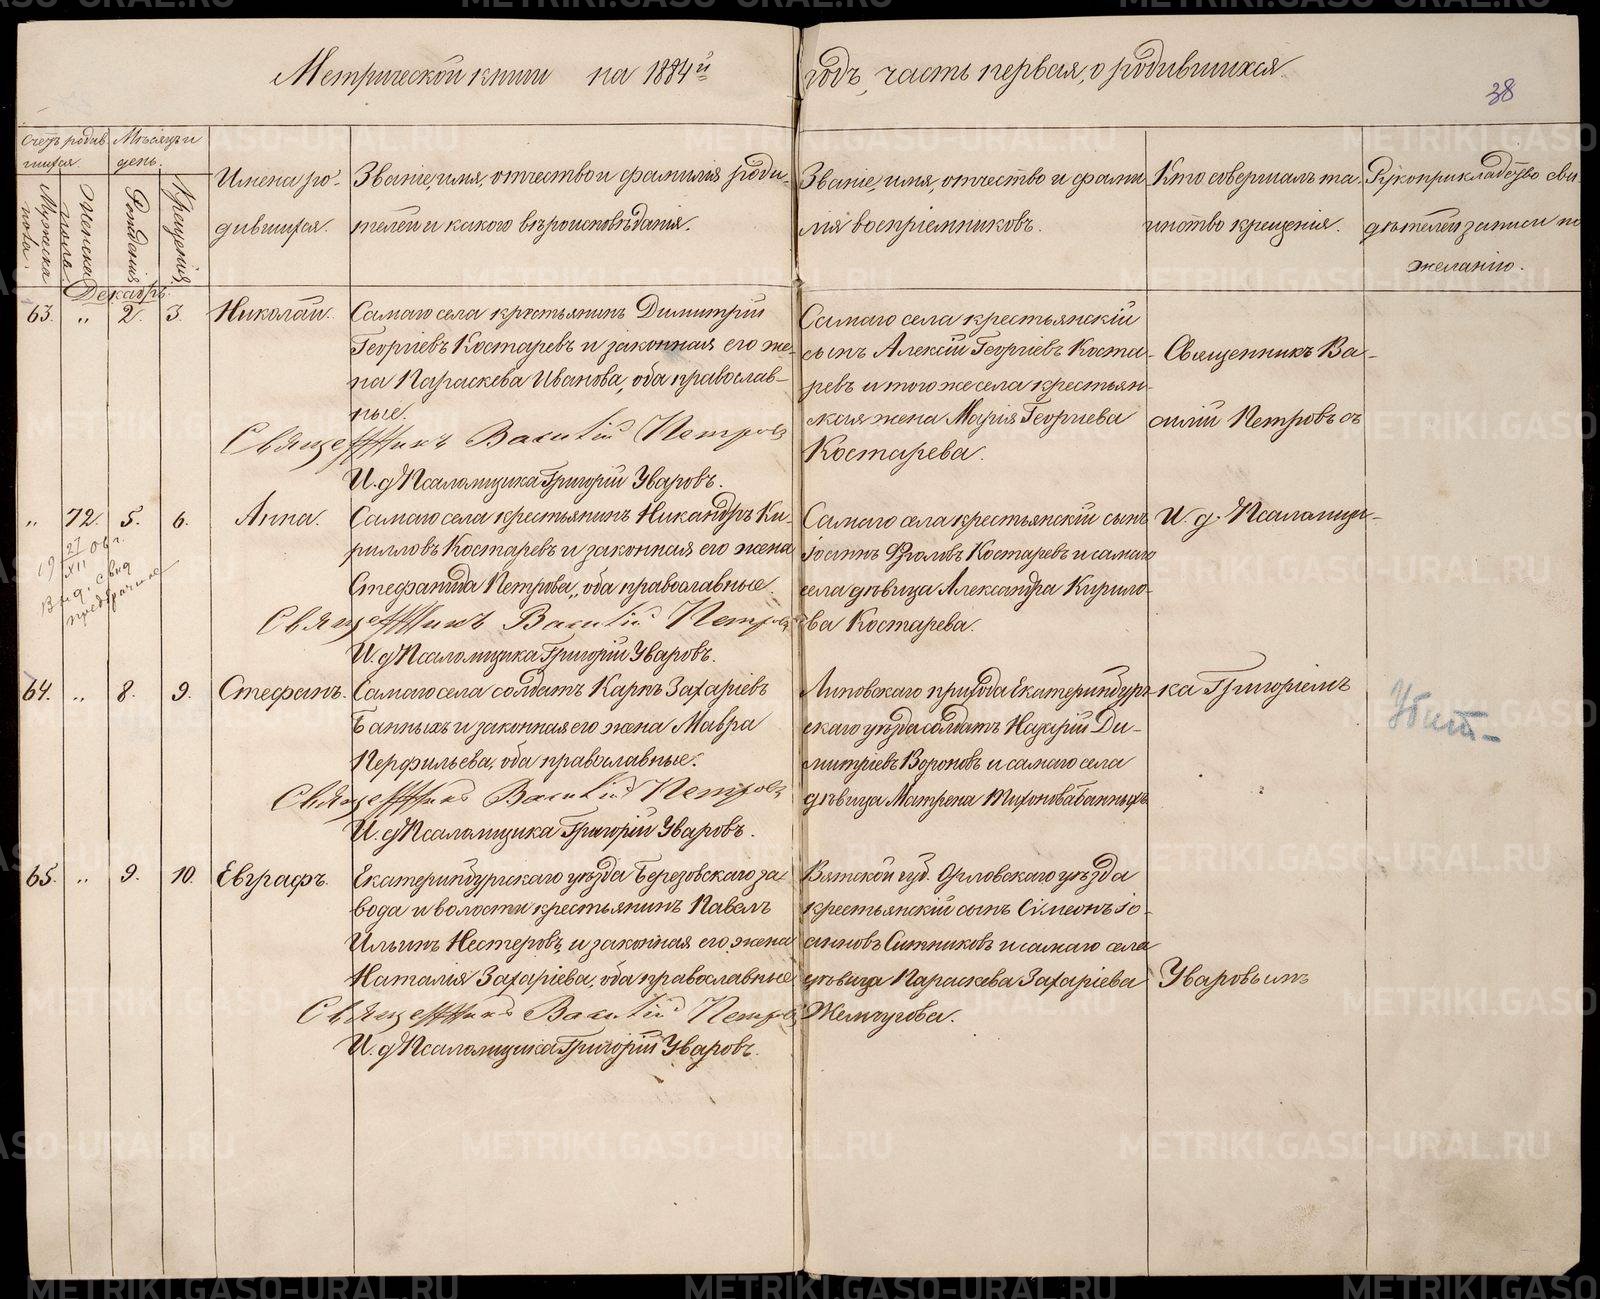 Метрической книги на 1884й годъ, часть первая, о родившихся.
38
Счетъ родив-
шихся.
Мужска
пола.
Женска
пола.
Мѣсяцъ и
день.
Рожденія
Крещенія
Имена ро-
дившихся.
Званіе, имя, отчество и фамилія роди-
телей и какого вѣроисповѣданія.
Званіе, имя, отчество и фами
лія воспріемниковъ.
Кто совершалъ та-
инство крещенія.
Рукоприкладство сви
дѣтелей записи по
желанію.
Декабрь.
63. „ 2. 3. Николай.
Самаго села крестьянинъ Димитрій
Георгіевъ Костаревъ и законная его же-
на Параскева Иванова, оба православ-
ные.
Священникъ Василій Петровъ
И. д. Псаломщика Григорій Уваровъ.
Самаго села крестьянскій
сынъ Алексій Георгіевъ Коста-
ревъ и того же села крестьян-
ская жена Марія Георгіева
Костарева.
Священникъ Ва-
силій Петровъ съ
„ 72. 5. 6. Анна.
27
XII
Выд. свид
Самаго села крестьянинъ Никандръ Ки-
рилловъ Костаревъ и законная его жена
Стефанида Петрова, оба православные.
Священникъ Василій Петровъ
И. д. Псаломщика Григорій Уваровъ.
Самаго села крестьянскій сынъ
Іоаннъ Фроловъ Костаревъ и самаго
села дѣвица Александра Кирило-
ва Костарева.
И. д. Псаломщи-
64. „ 8. 9. Стефанъ.
Самаго села солдатъ Карпъ Захаріевъ
Банныхъ и законная его жена Мавра
Перфильева, оба православные.
Священникъ Василій Петровъ
И. д. Псаломщика Григорій Уваровъ.
Липовскаго прихода Екатеринбург-
скаго уѣзда солдатъ Назарій Ди-
митріевъ Вороновъ и самаго села
дѣвица Матрена Тихонова Банныхъ
ка Григоріемъ
Убит-
65. „ 9. 10. Евграфъ.
Екатеринбургскаго уѣзда Березовскаго за-
вода и волости крестьянинъ Павелъ
Ильинъ Нестеровъ и законная его жена
Наталія Захаріева, оба православные
Священникъ Василій Петровъ
И. д. Псаломщика Григорій Уваровъ.
Вятской губ. Орловскаго уѣзда
крестьянскій сынъ Симеонъ Іо-
анновъ Ситниковъ и самаго села
дѣвица Параскева Захаріева
Жемчугова.
Уваровымъ
METRIKI.GASO-URAL.RU